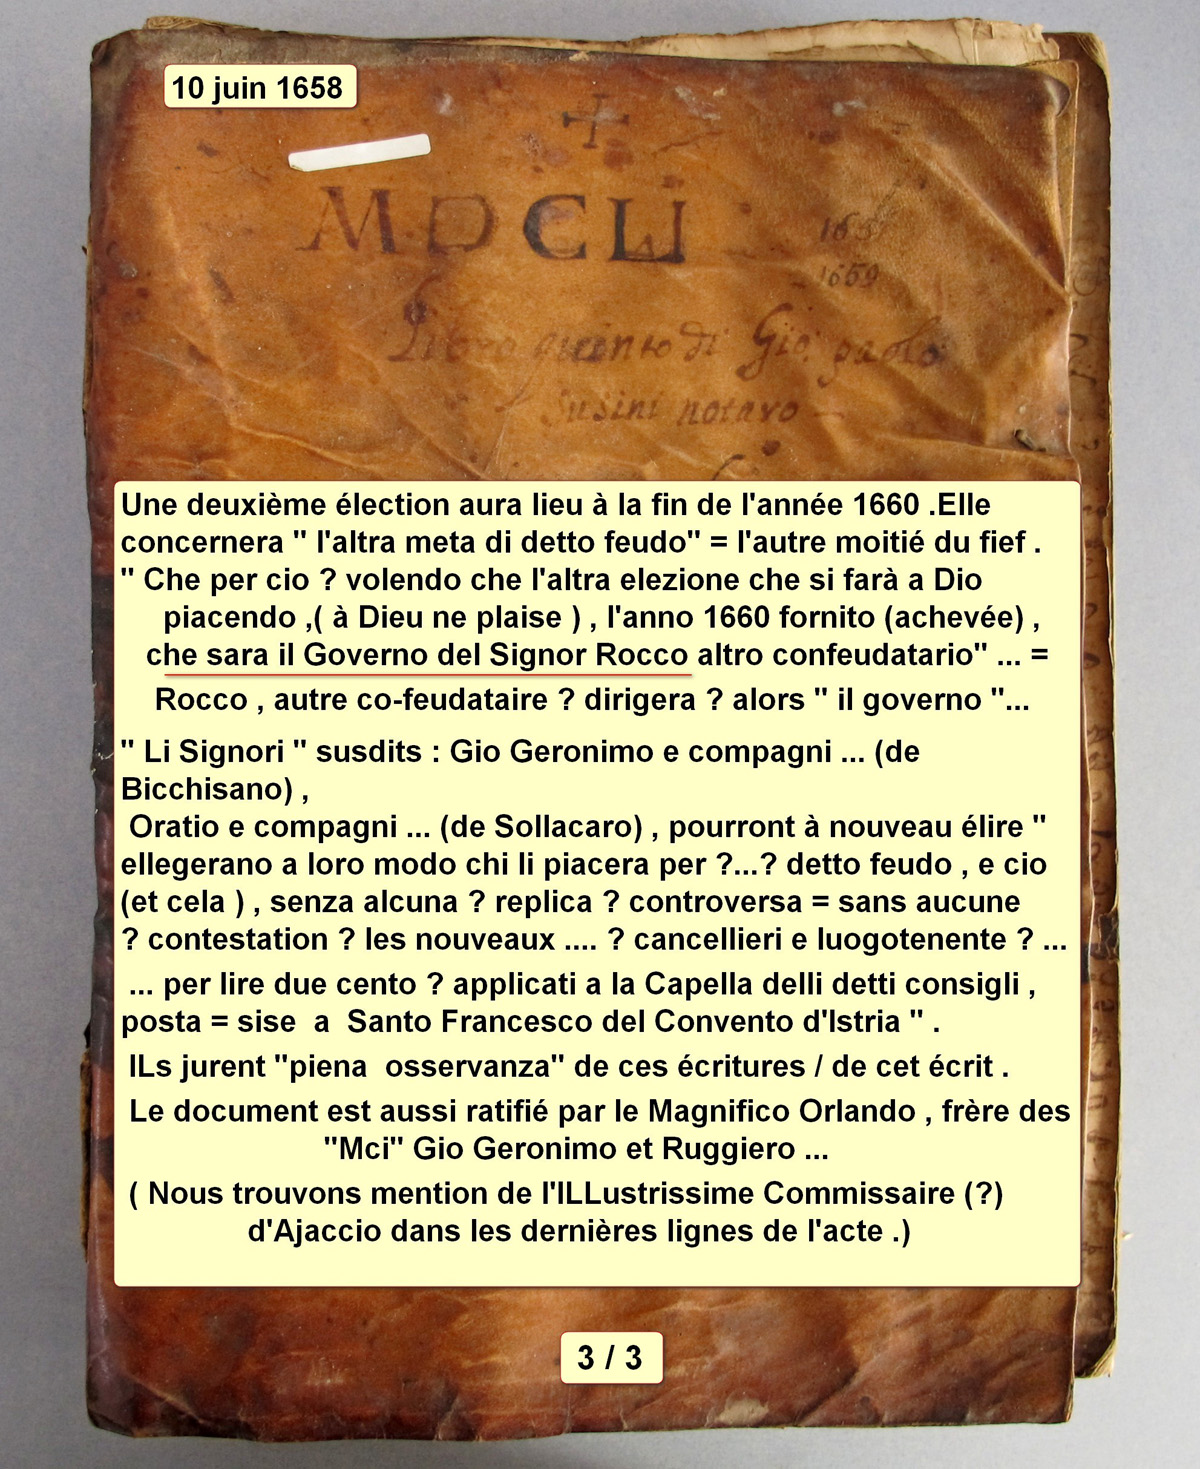 10 juin 1658
MDCLII
1659
Libro quinto di Gio: paolo
Susini notaro
Une deuxième élection aura lieu à la fin de l'année 1660 .Elle
concernera " l'altra meta di detto feudo" = l'autre moitié du fief .
" Che per cio ? volendo che l'altra elezione che si farà a Dio
piacendo ,( à Dieu ne plaise ) , l'anno 1660 fornito (achevée) ,
che sara il Governo del Signor Rocco altro confeudatario" ... =
Rocco , autre co-feudataire ? dirigera ? alors " il governo "...
" Li Signori " susdits : Gio Geronimo e compagni ... (de
Bicchisano) ,
Oratio e compagni ... (de Sollacaro) , pourront à nouveau élire "
ellegerano a loro modo chi li piacera per ?...? detto feudo , e cio
(et cela ) , senza alcuna ? replica ? controversa = sans aucune
? contestation ? les nouveaux .... ? cancellieri e luogotenente ? ...
... per lire due cento ? applicati a la Capella delli detti consigli ,
posta = sise a Santo Francesco del Convento d'Istria " .
ILs jurent "piena osservanza" de ces écritures / de cet écrit .
Le document est aussi ratifié par le Magnifico Orlando , frère des
"Mci" Gio Geronimo et Ruggiero ...
( Nous trouvons mention de l'ILLustrissime Commissaire (?)
d'Ajaccio dans les dernières lignes de l'acte .)
3 / 3